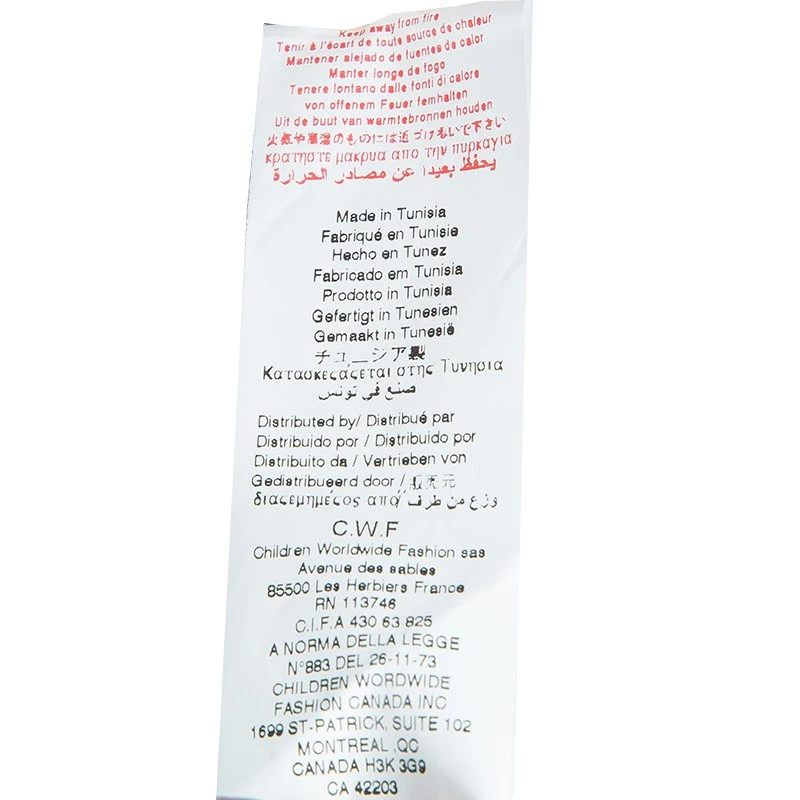 Keep away from fire
Tenir à l'écart de toute source de chaleur
Mantener alejado de fuentes de calor
Manter longe de fogo
Tenere lontano dalle fonti di calore
von offenem Feuer fernhalten
Uit de buut van warmtebronnen houden
火気や高温のものには近づけないで下さい
κρατηστε μακρυα απο την πυρκαγια
يحفظ بعيدا عن مصادر الحرارة
Made in Tunisia
Fabriqué en Tunisie
Hecho en Tunez
Fabricado em Tunisia
Prodotto in Tunisia
Gefertigt in Tunesien
Gemaakt in Tunesië
チュニジア製
Κατασκεςάςεται στης Τυνησια
صنع في تونس
Distributed by/ Distribué par
Distribuido por / Distribuido por
Distribuito da / Vertrieben von
Gedistribueerd door / 販売元
διαςεμημέςος από/ وزع من طرف
C.W.F
Children Worldwide Fashion sas
Avenue des sables
85500 Les Herbiers France
RN 113746
C.I.F.A 430 63 825
A NORMA DELLA LEGGE
N°883 DEL 26-11-73
CHILDREN WORDWIDE
FASHION CANADA INC
1699 ST-PATRICK, SUITE 102
MONTREAL ,QC
CANADA H3K 3G9
CA 42203